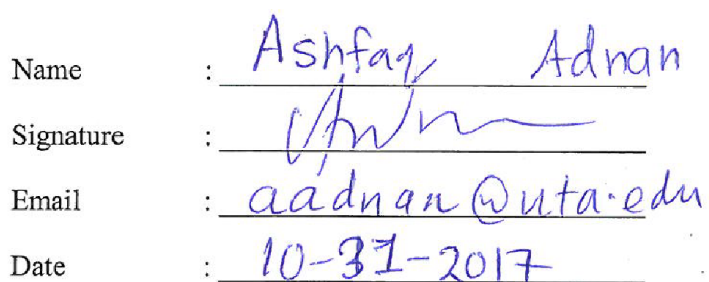 Name : Ashfaq Adnan
Signature :
Email : aadnan@uta.edu
Date : 10-31-2017